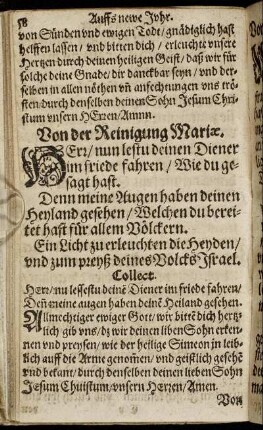 58 Auffs newe Jahr.
von Sünden vnd ewigen Todt/ gnädiglich hast
helffen lassen/ vnd bitten dich/ erleuchte vnsere
Hertzen durch deinen heiligen Geist/ daß wir für
solche deine Gnade/ dir danckbar seyn/ vnd der-
selben in allen nöthen vñ anfechtungen vns trö-
sten/ durch denselben deinen Sohn Jesum Chri-
stum vnsern HErren Amen.
Von der Reinigung Mariæ.
HErr/ nun lestu deinen Diener
im friede fahren/ Wie du ge-
sagt hast.
Denn meine Augen haben deinen
Heyland gesehen/ Welchen du berei-
tet hast für allem Völckern.
Ein Licht zu erleuchten die Heyden/
vnd zum preyß deines Volcks Israel.
Collect.
HErr/ nu lessestu deinē Diener im friede fahren/
Deñ meine augen haben deinē Heiland gesehen.
Allmechtiger ewiger Gott/ wir bittē dich hertz-
lich gib vns/ dz wir deinen liben Sohn erken-
nen vnd preysen/ wie der heilige Simeon jn leib-
lich auff die Arme genom̃en/ vnd geistlich gesehē
vnd bekant/ durch denselben deinen lieben Sohn
Jesum Christum/ vnsern Herren/ Amen.
Von